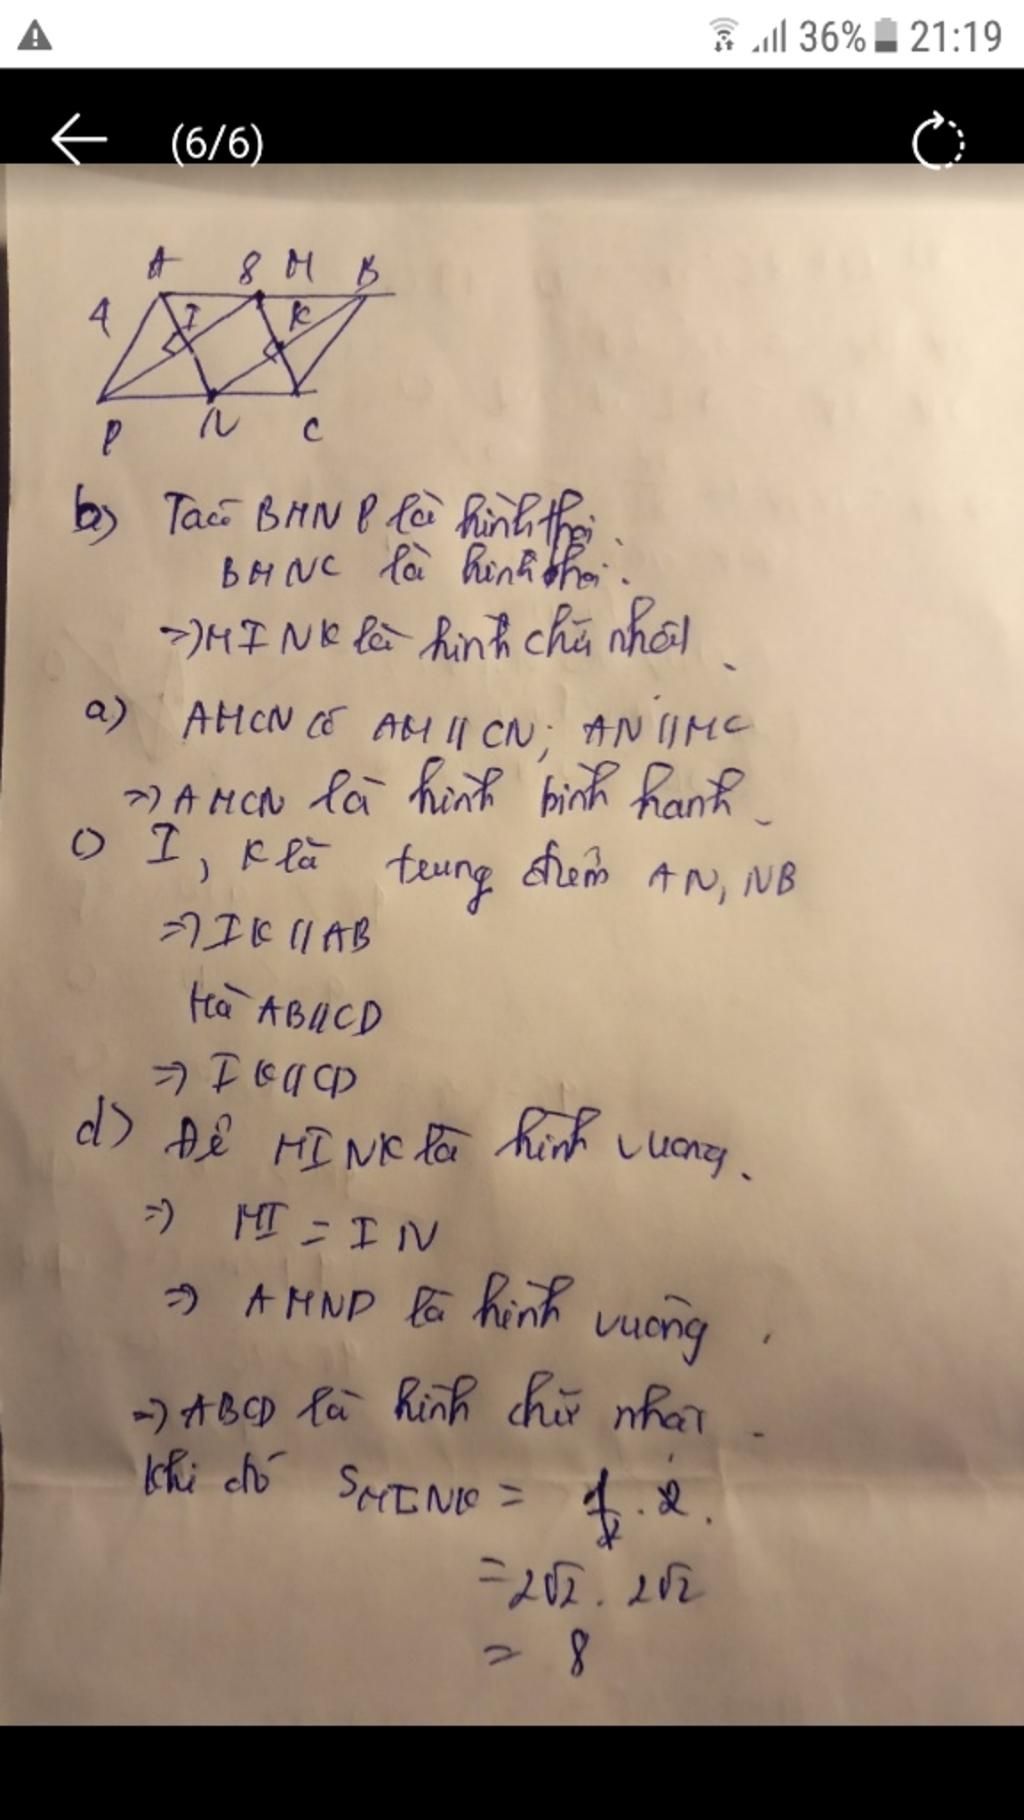 36% 21:19
(6/6)
A 8 M B
4 I K
P N C
b) Ta có BMNP là hình thoi.
BMNC là hình thoi.
=> MINK là hình chữ nhật.
a) AMCN có AM // CN; AN // MC
=> AMCN là hình bình hanh.
c) I, K là trung điểm AN, NB
=> IK // AB
Mà AB // CD
=> IK // CD
d) Để MINK là hình vuong.
=> MI = IN
=> AMND là hình vuông.
=> ABCD là hình chữ nhật.
Khi đó SMINK = . 2.
= 2√2 . 2√2
= 8